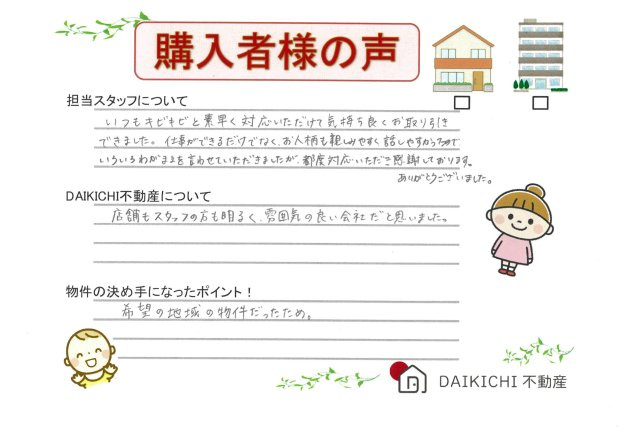 購入者様の声
担当スタッフについて
いつもキビキビと素早く対応いただけて気持ち良くお取り引き
できました。仕事ができるだけでなく、お人柄も親しみやすく話しやすかったので
いろいろわがままを言わせていただきましたが、都度対応いただき感謝しております。
ありがとうございました。
DAIKICHI不動産について
店舗もスタッフの方も明るく、雰囲気の良い会社だと思いました。
物件の決め手になったポイント!
希望の地域の物件だったため。
DAIKICHI 不動産